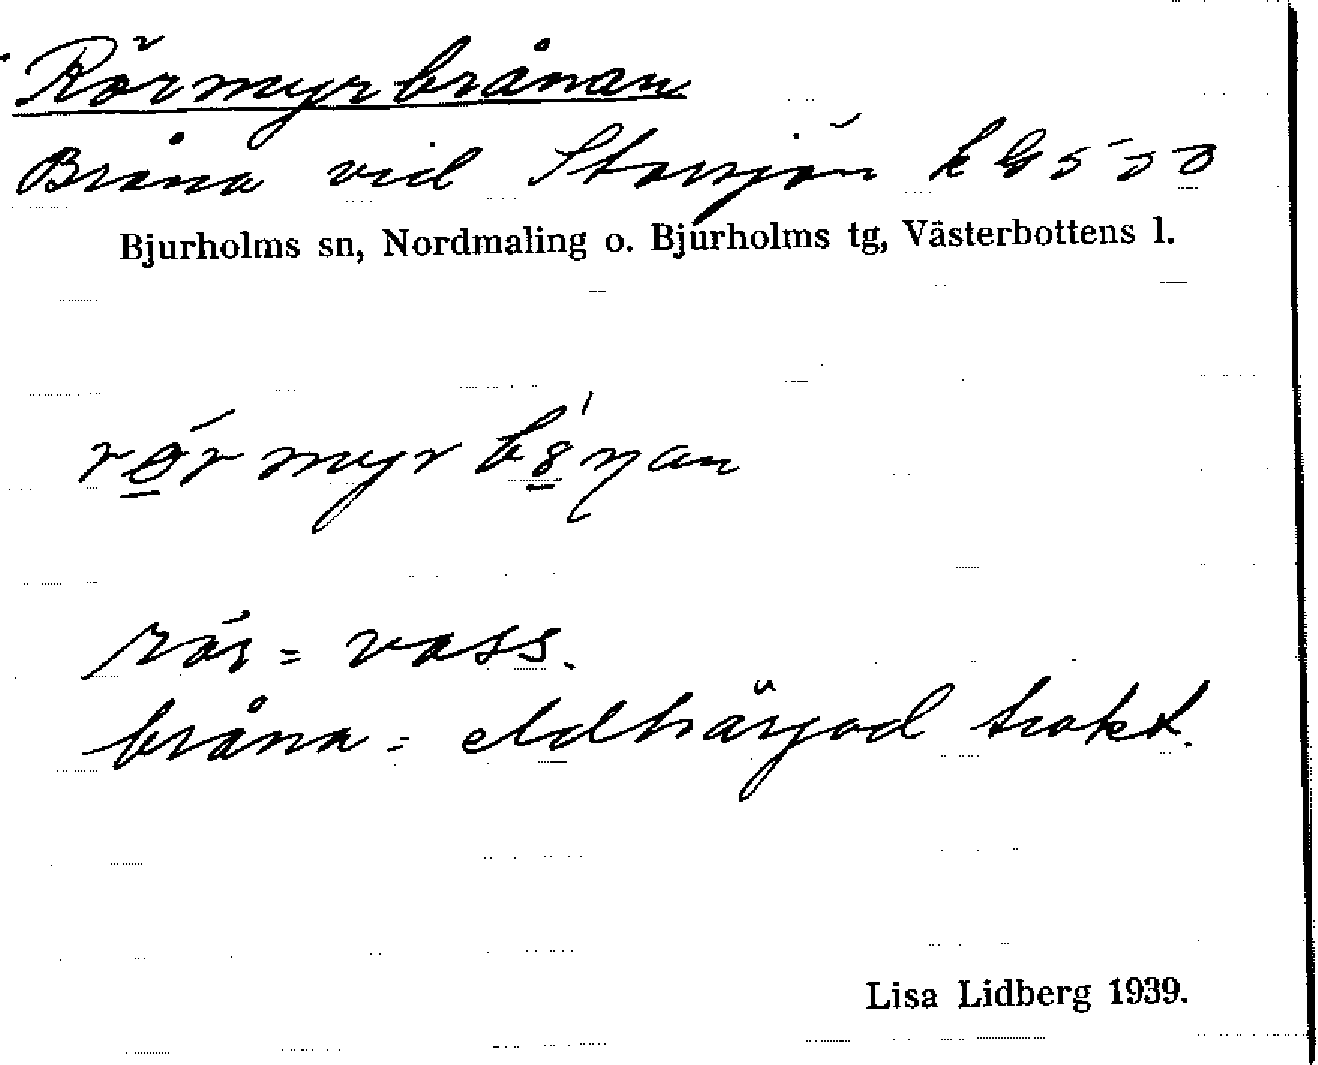 Rörmyrbrånan
Bråna vid Storsjön k G 5 5 0
Bjurholms sn, Nordmaling o. Bjurholms tg, Västerbottens l.
rör = vass.
bråna = eldhärjad trakt.
Lisa Lidberg 1939.